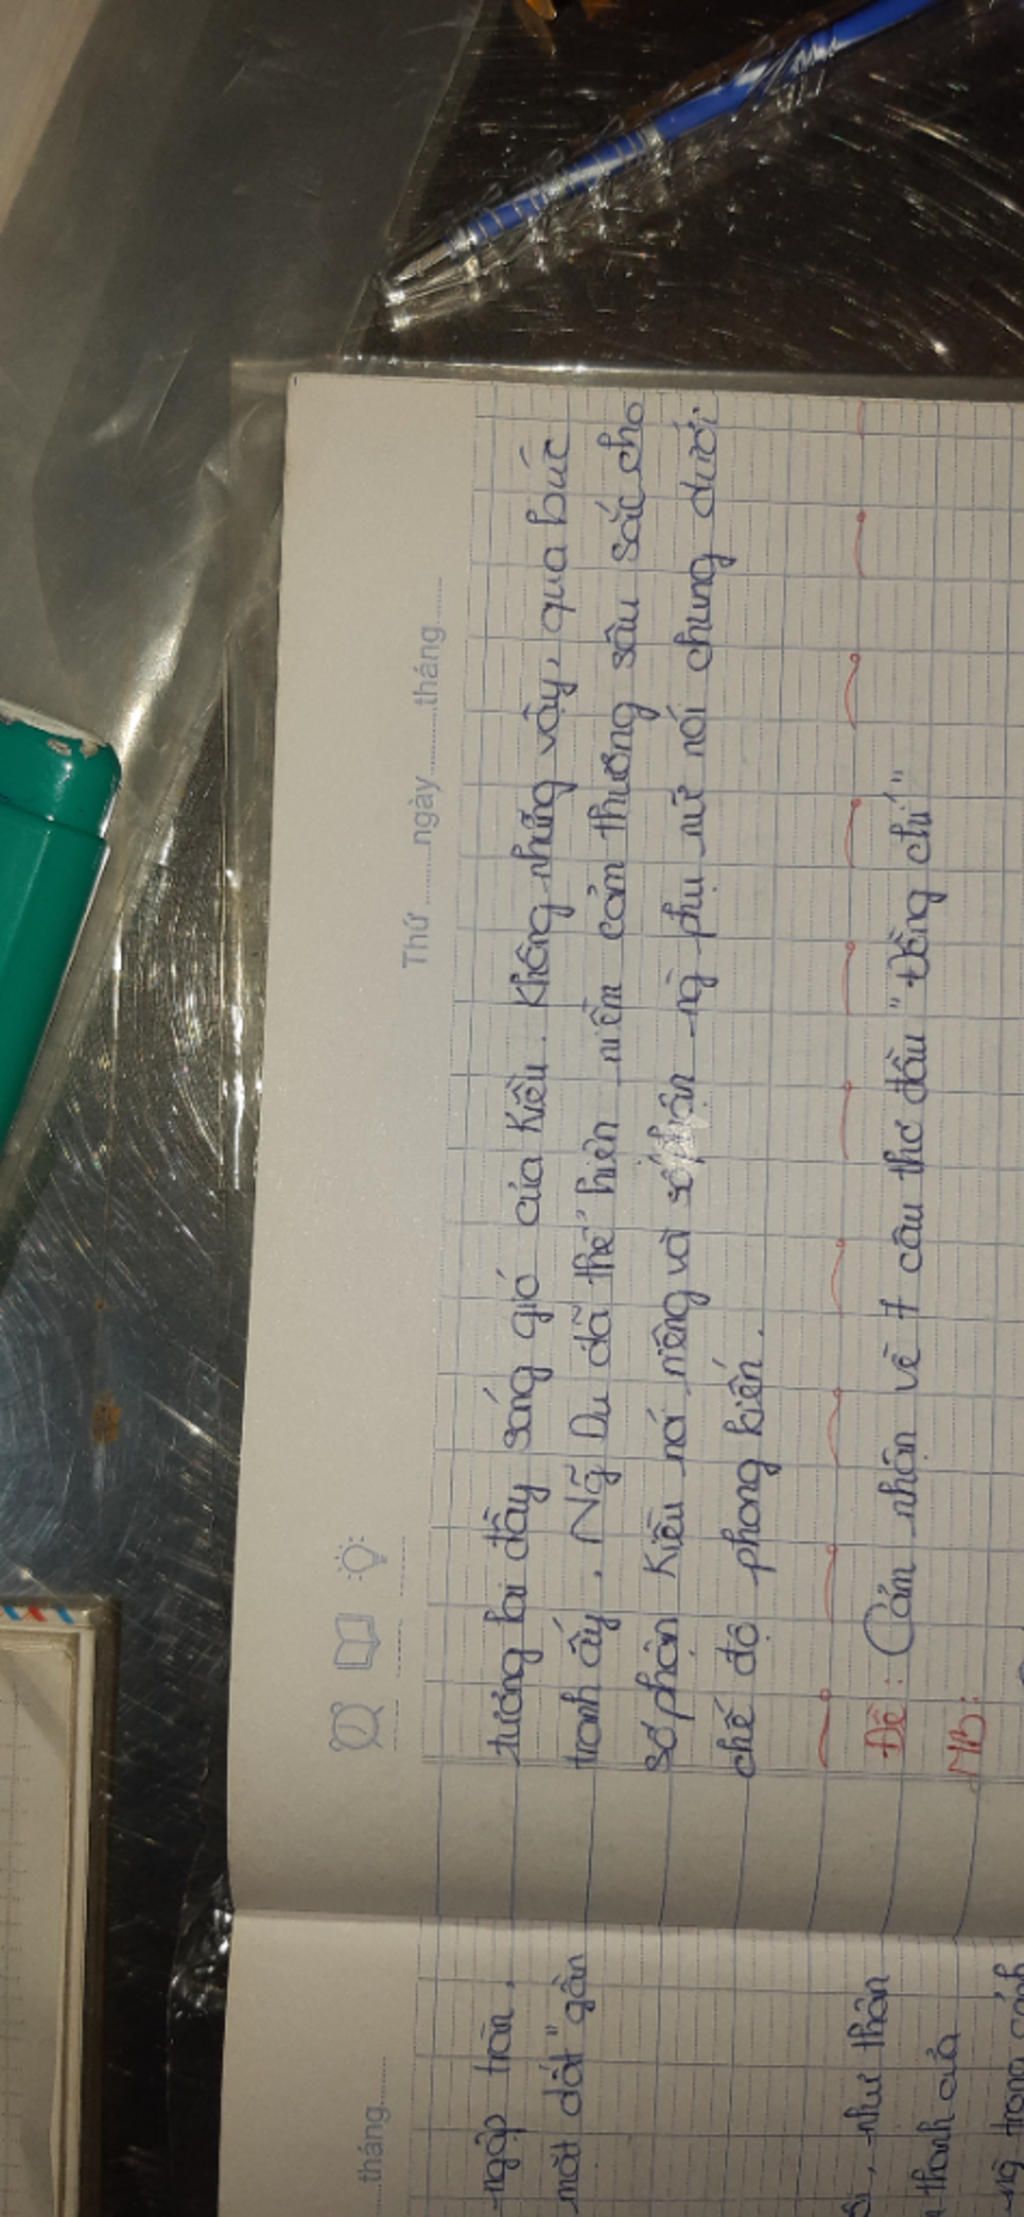 Thứ..........ngày..........tháng.........
tương lai đầy sóng gió của Kiều. Không những vậy, qua bức
tranh ấy, Ng~ Du đã thể hiện niềm cảm thương sâu sắc cho
số phận Kiều nói riêng và số phận ng` phụ nữ nói chung dưới
chế độ phong kiến.
Đề: Cảm nhận về 7 câu thơ đầu "Đồng chí"
MB:
.........tháng.........
ngập tràn,
mặt đất" gần
, như thân
thanh của
trong cảnh